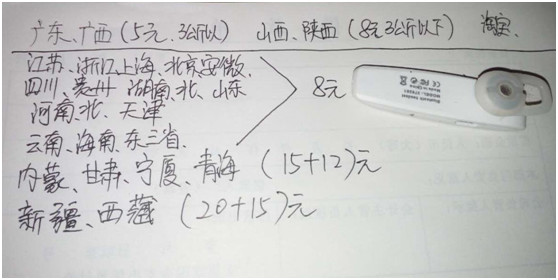 广东、广西（5元、3公斤以） 山西、陕西（8元3公斤以下） 淘宝、
江苏、浙江上海、北京安微、
四川、贵州 湖南、北、山东
河南、北、天津
8元
云南、海南、东三省、
内蒙、甘肃、宁夏、青海（15+12）元
新疆、西藏（20+15）元